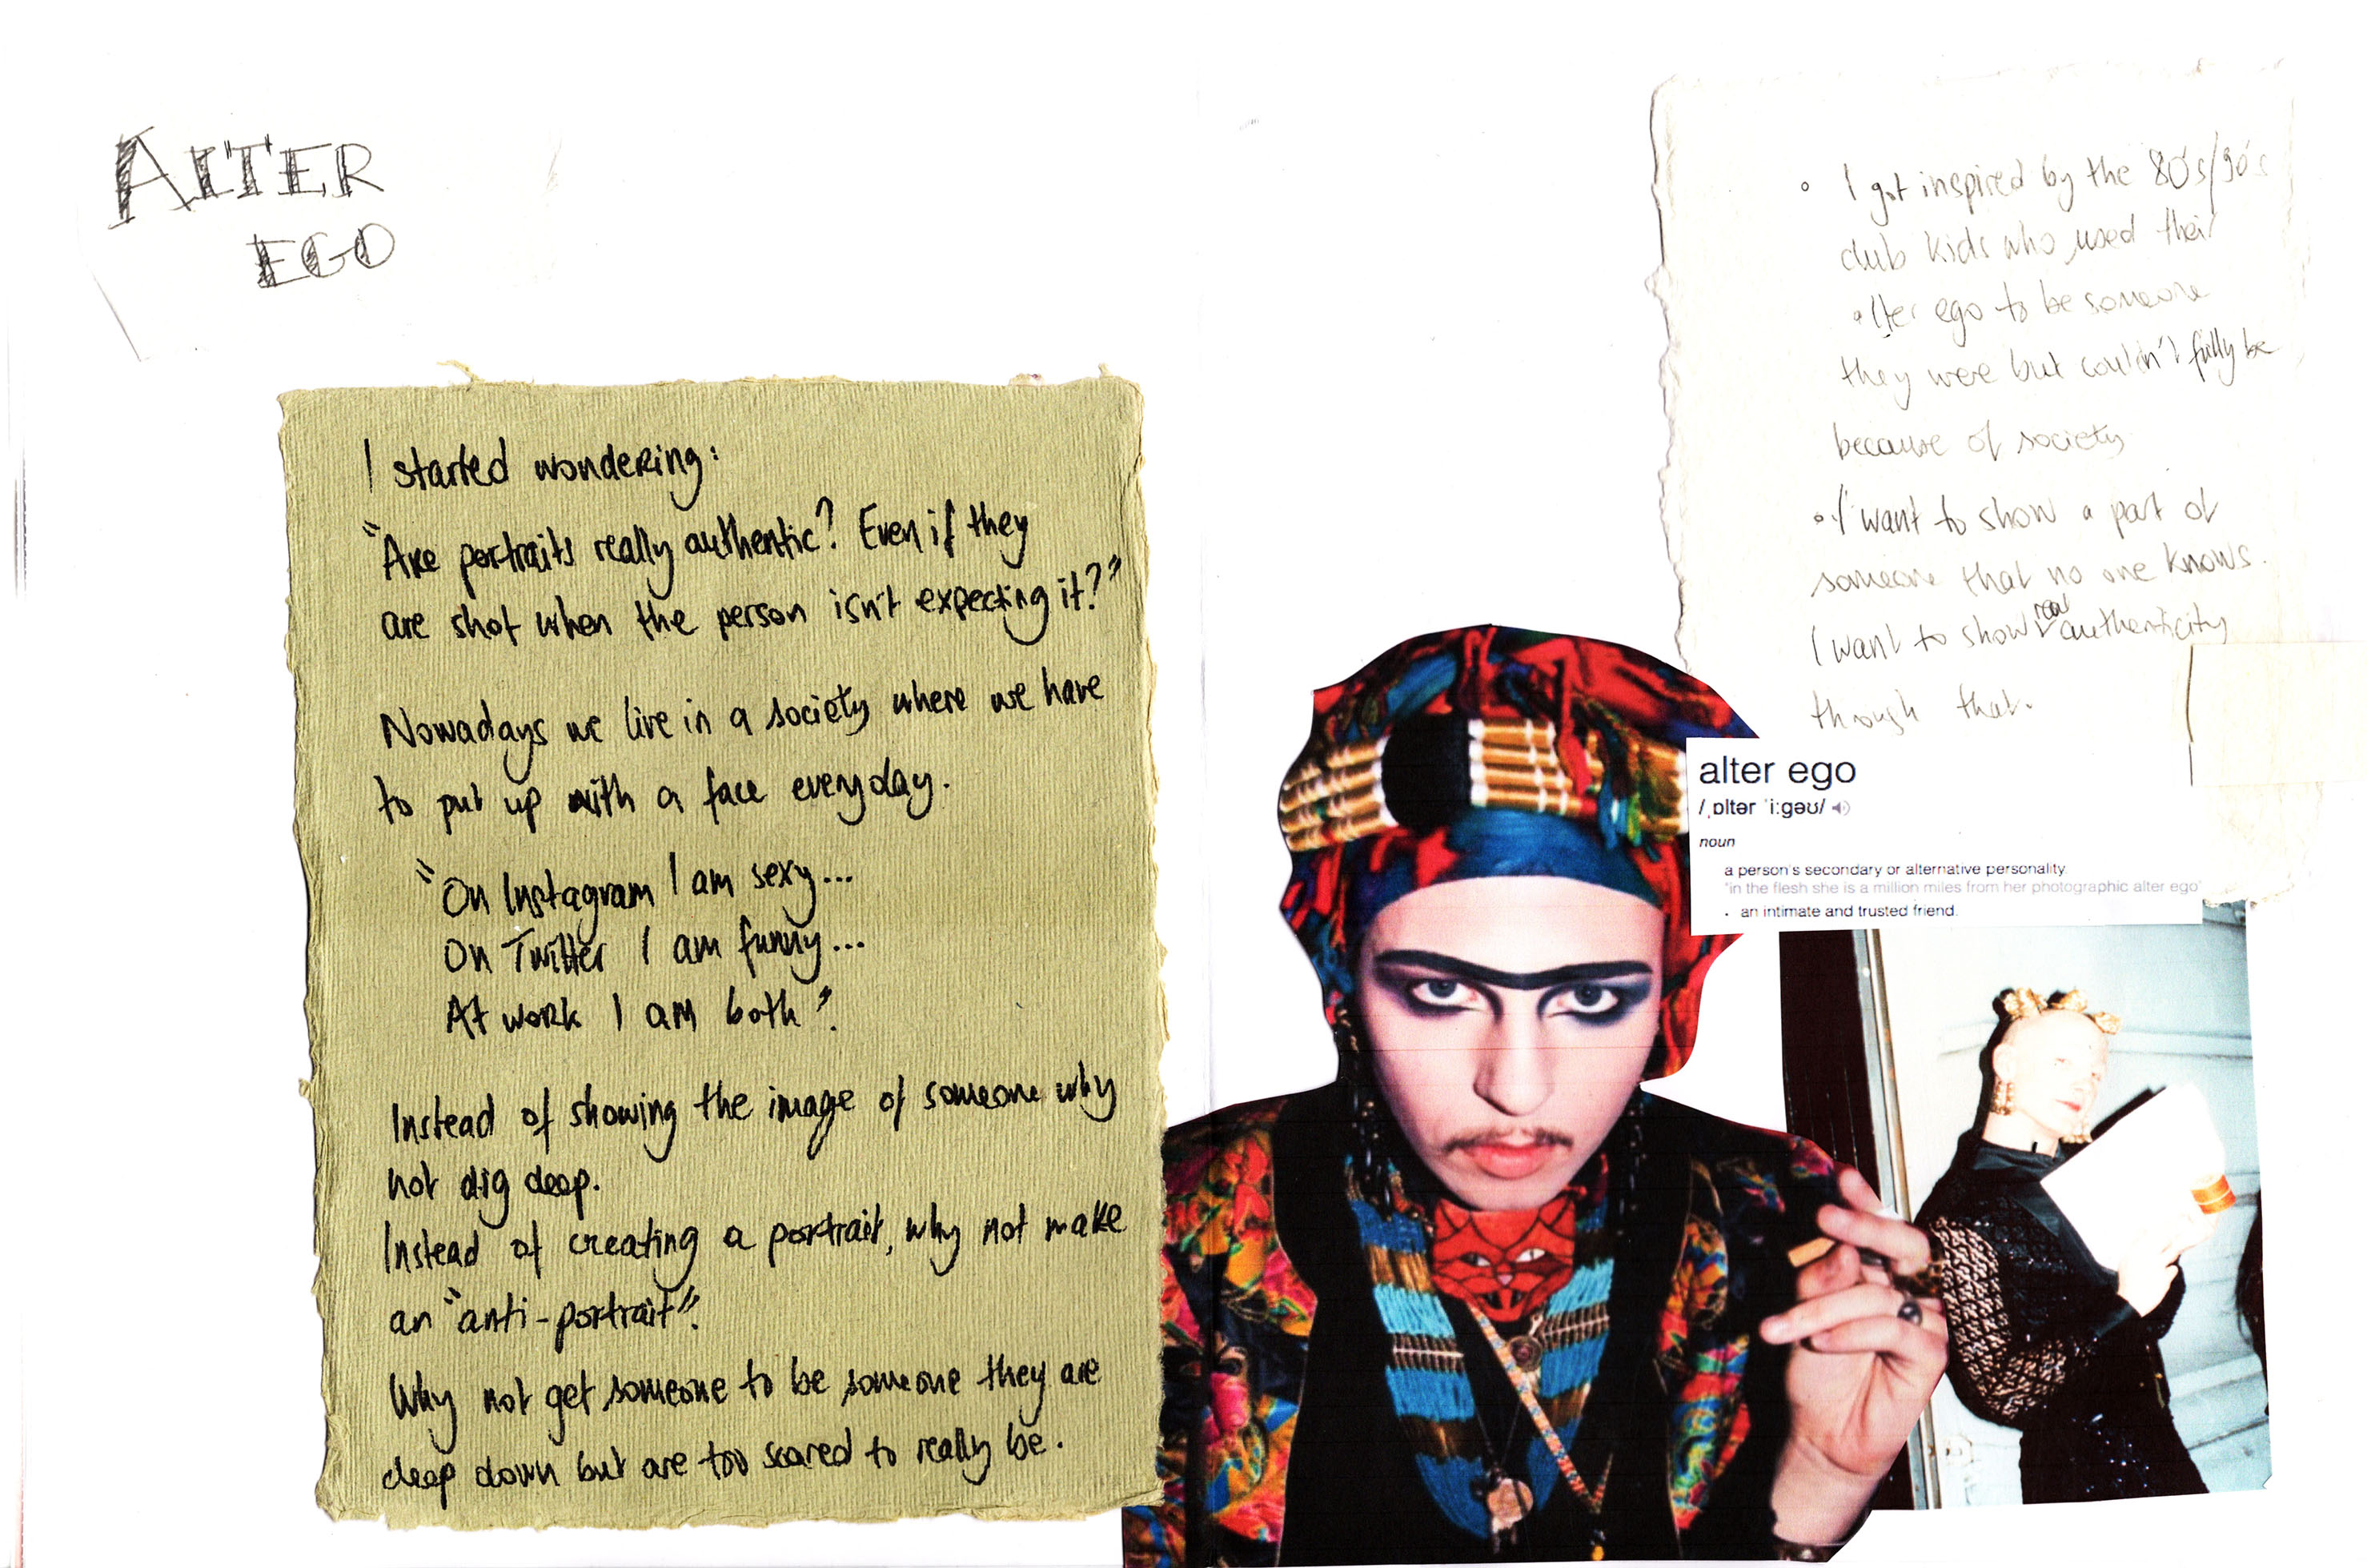 ALTER
EGO
I started wondering:
"Are portraits really authentic? Even if they
are shot when the person isn't expecting it?"
Nowadays we live in a society where we have
to put up with a face everyday.
"On Instagram I am sexy...
On Twitter I am funny...
At work I am both".
Instead of showing the image of someone why
not dig deep.
Instead of creating a portrait, why not make
an "anti-portrait".
Why not get someone to be someone they are
deep down but are too scared to really be.
• I got inspired by the 80's/90's
club kids who used their
alter ego to be someone
they were but couldn't fully be
because of society
• I want to show a part of
someone that no one knows.
I want to show real authenticity
through that.
alter ego
/ˌɒltər ˈiːɡəʊ/
noun
a person's secondary or alternative personality.
"in the flesh she is a million miles from her photographic alter ego"
• an intimate and trusted friend.